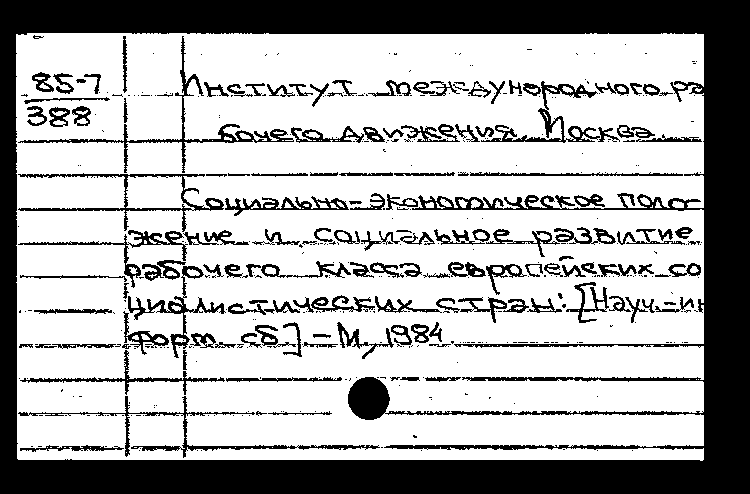 85-7
388
Институт международного ра
бочего движения. Москва.
Социально-экономическое поло-
жение и социальное развитие
рабочего класса европейских со
циалистических стран: [Науч.-ин
форм. сб.]. - М., 1984.